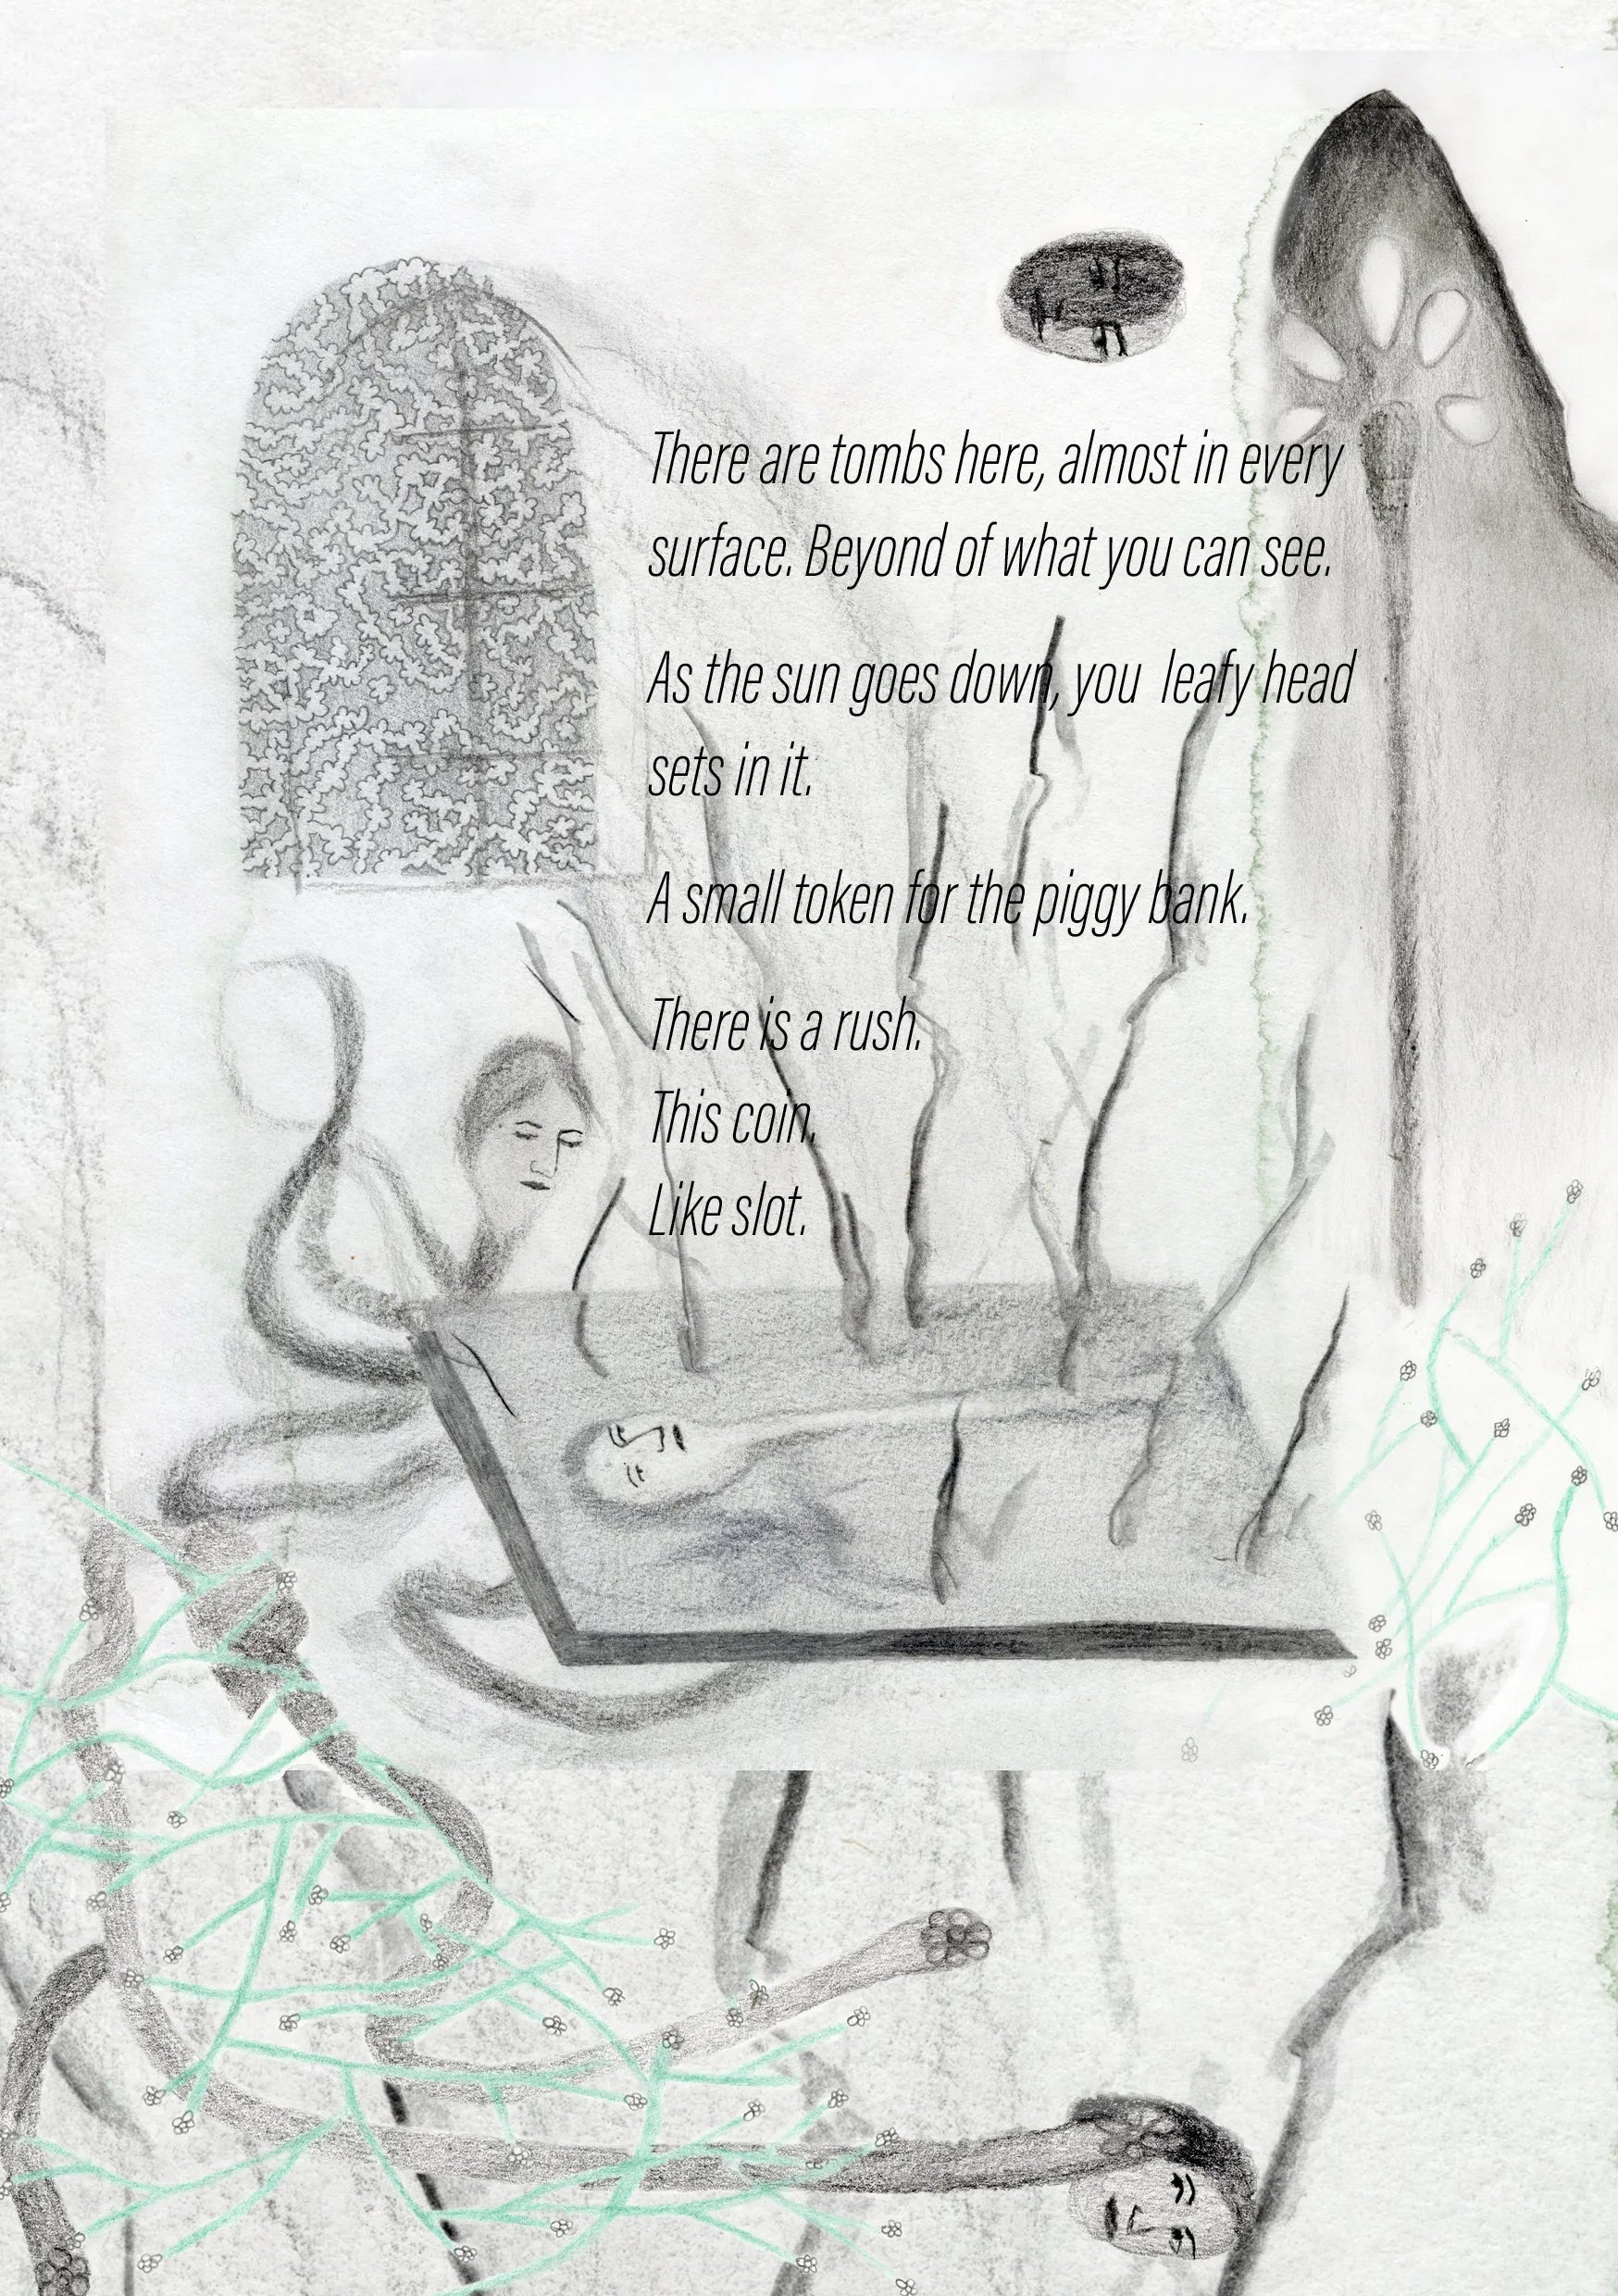 There are tombs here, almost in every
surface. Beyond of what you can see.
As the sun goes down, you  leafy head
sets in it.
A small token for the piggy bank.
There is a rush.
This coin,
Like slot.